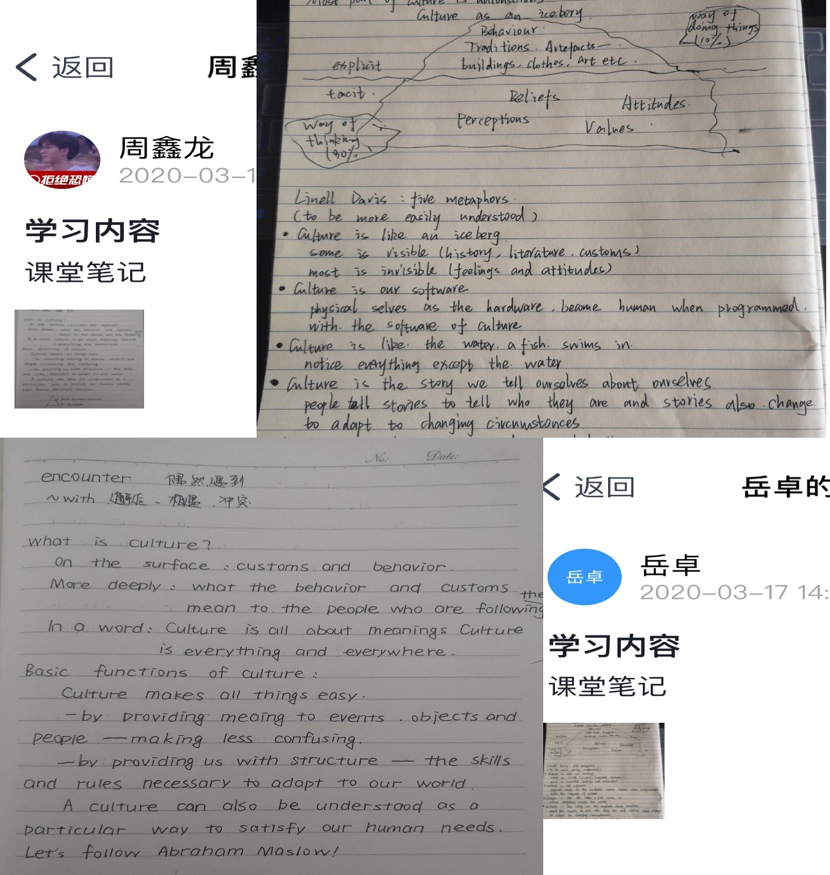 返回
周鑫
周鑫龙
2020-03-1
学习内容
课堂笔记
Most part of culture is unconscious
Culture as an iceberg
way of
doing things
(10%)
Behaviour
Traditions. Artefacts
explicit
buildings, clothes, art etc.
tacit.
Beliefs
Attitudes.
way of
thinking
(90%)
Perceptions
Values
Linell Davis : five metaphors
(to be more easily understood)
• Culture is like an iceberg
some is visible (history, literature, customs)
most is invisible (feelings and attitudes)
• Culture is our software
physical selves as the hardware, become human when programmed.
with the software of culture
• Culture is like the water a fish swims in
notice everything except the water
• Culture is the story we tell ourselves about ourselves
people tell stories to tell who they are and stories also change
to adapt to changing circumstances
No:
Date:
encounter 偶然遇到
~with 邂逅、相遇、冲突
what is culture?
On the surface : customs and behavior.
More deeply : what the behavior and customs
mean to the people who are following
the
In a word : Culture is all about meanings Culture
is everything and everywhere.
Basic functions of culture :
Culture makes all things easy.
—by providing meaing to events, objects and
people —making less confusing.
—by providing us with structure — the skills
and rules necessary to adapt to our world.
A culture can also be understood as a
particular way to satisfy our human needs.
Let's follow Abraham Maslow!
返回
岳卓的
岳卓
岳卓
2020-03-17 14:
学习内容
课堂笔记